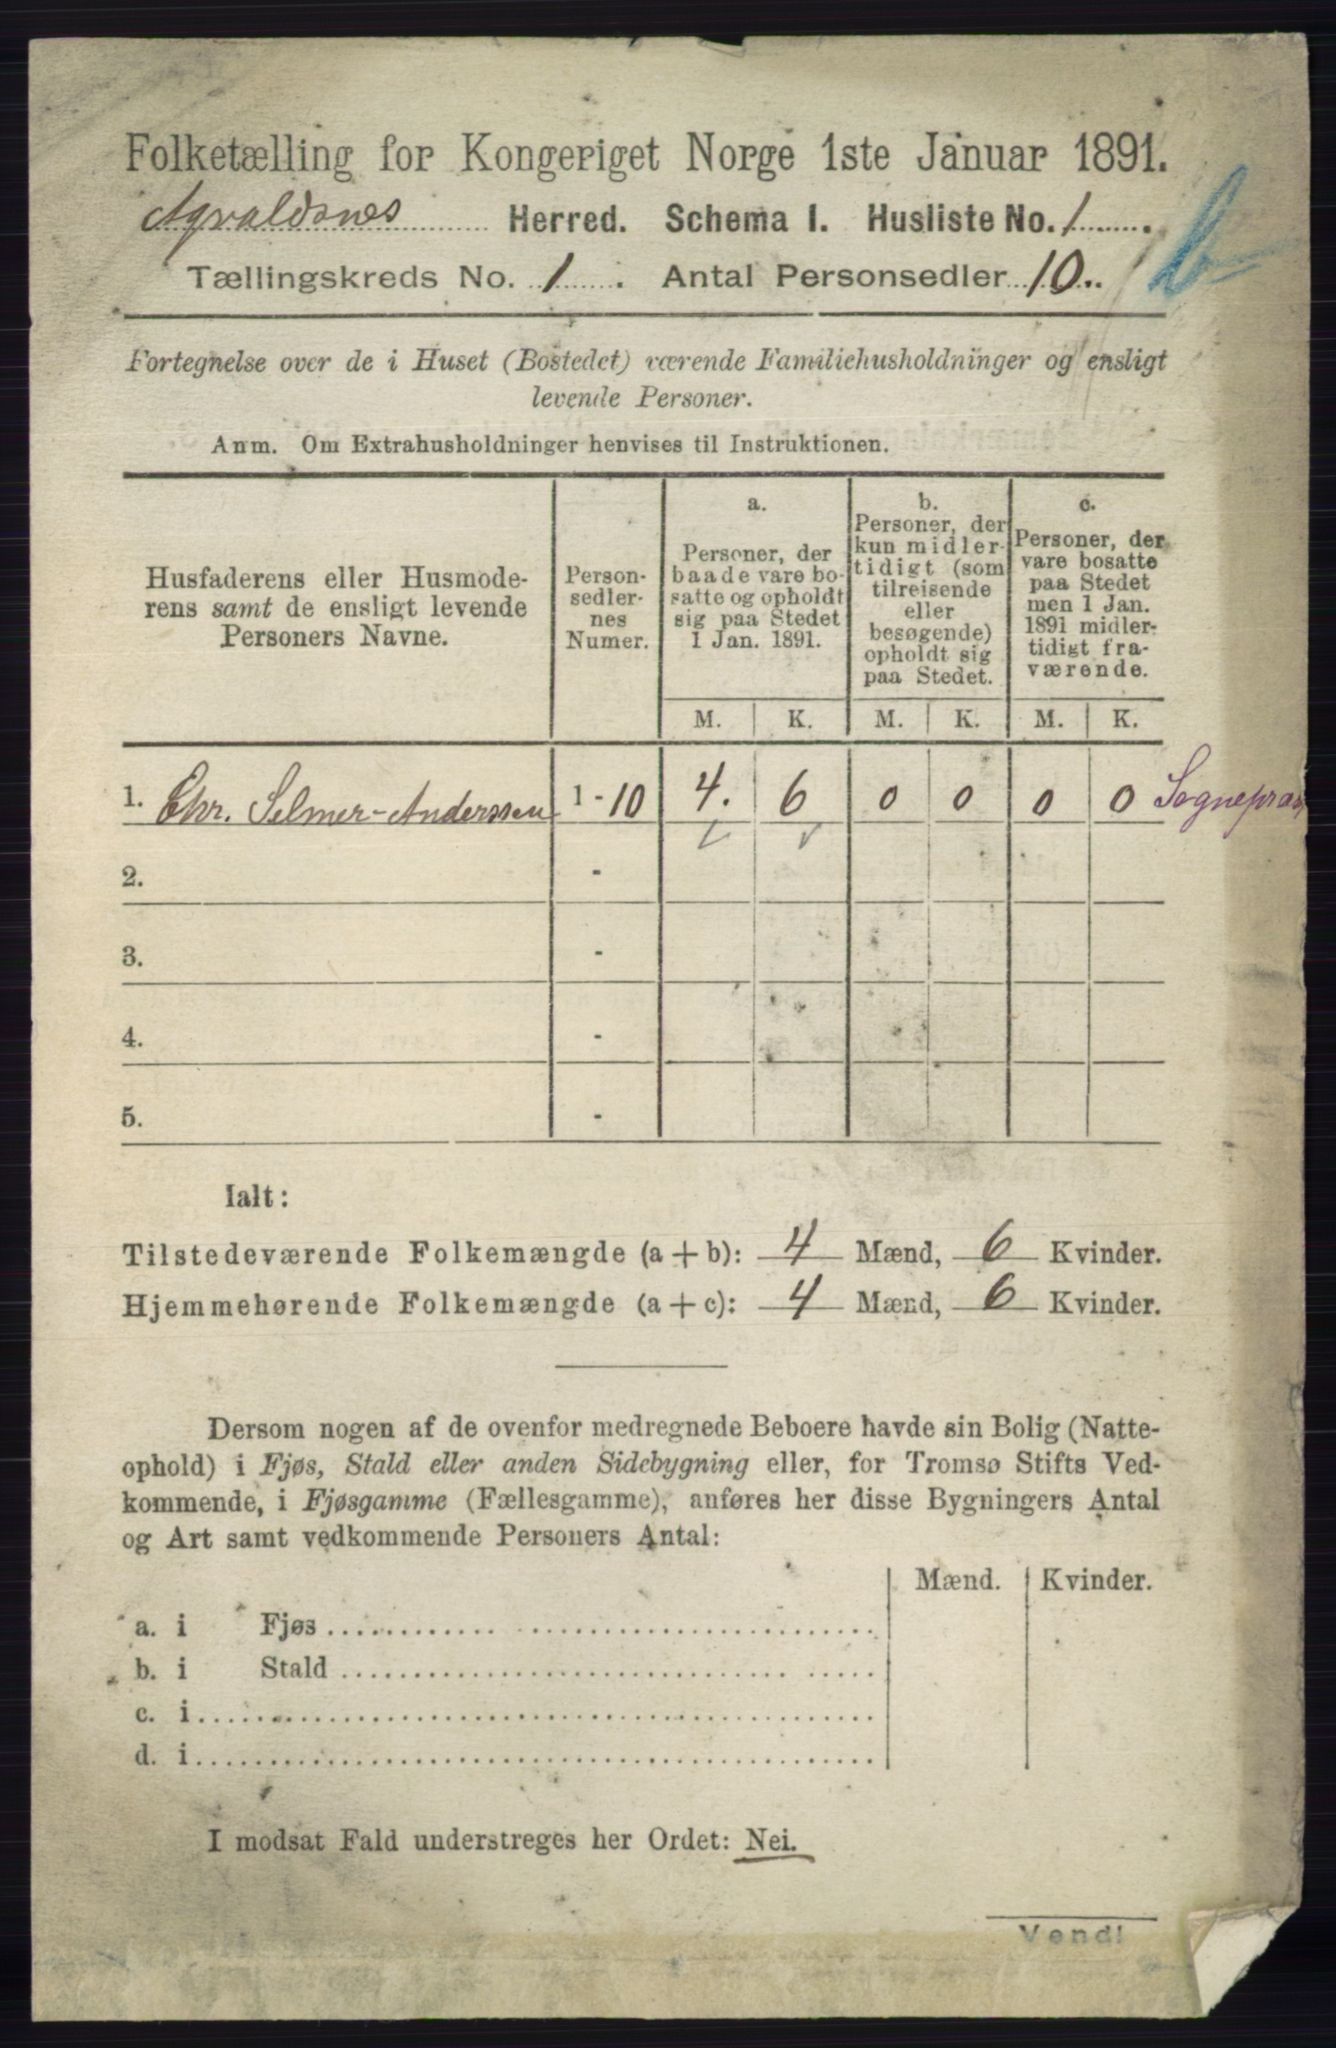 Folketælling for Kongeriget Norge 1ste Januar 1891.
Agvaldsnes Herred. Schema I. Husliste No. 1
Tællingskreds No. 1. Antal Personsedler 10.
Fortegnelse over de i Huset (Bostedet) værende Familiehusholdninger og ensligt
levende Personer.
Anm. Om Extrahusholdninger henvises til Instruktionen.
Husfaderens eller Husmode-
rens samt de ensligt levende
Personers Navne.
Person-
sedler-
nes
Numer.
a.
Personer, der
baade vare bo-
satte og opholdt
sig paa Stedet
1 Jan. 1891.
b.
Personer, der
kun midler-
tidigt (som
tilreisende
eller
besøgende)
opholdt sig
paa Stedet.
c.
Personer, der
vare bosatte
paa Stedet
men 1 Jan.
1891 midler-
tidigt fra-
værende.
M. K. M. K. M. K.
1. Chr. Selmer-Anderssen 1 - 10 4. 6 0 0 0 0 Sognepræst
2. -
3. -
4. -
5. -
Ialt:
Tilstedeværende Folkemængde (a + b): 4 Mænd, 6 Kvinder.
Hjemmehørende Folkemængde (a + c): 4 Mænd, 6 Kvinder.
Dersom nogen af de ovenfor medregnede Beboere havde sin Bolig (Natte-
ophold) i Fjøs, Stald eller anden Sidebygning eller, for Tromsø Stifts Ved-
kommende, i Fjøsgamme (Fællesgamme), anføres her disse Bygningers Antal
og Art samt vedkommende Personers Antal:
Mænd. Kvinder.
a. i Fjøs
b. i Stald
c. i
d. i
I modsat Fald understreges her Ordet: Nei.
Vend!